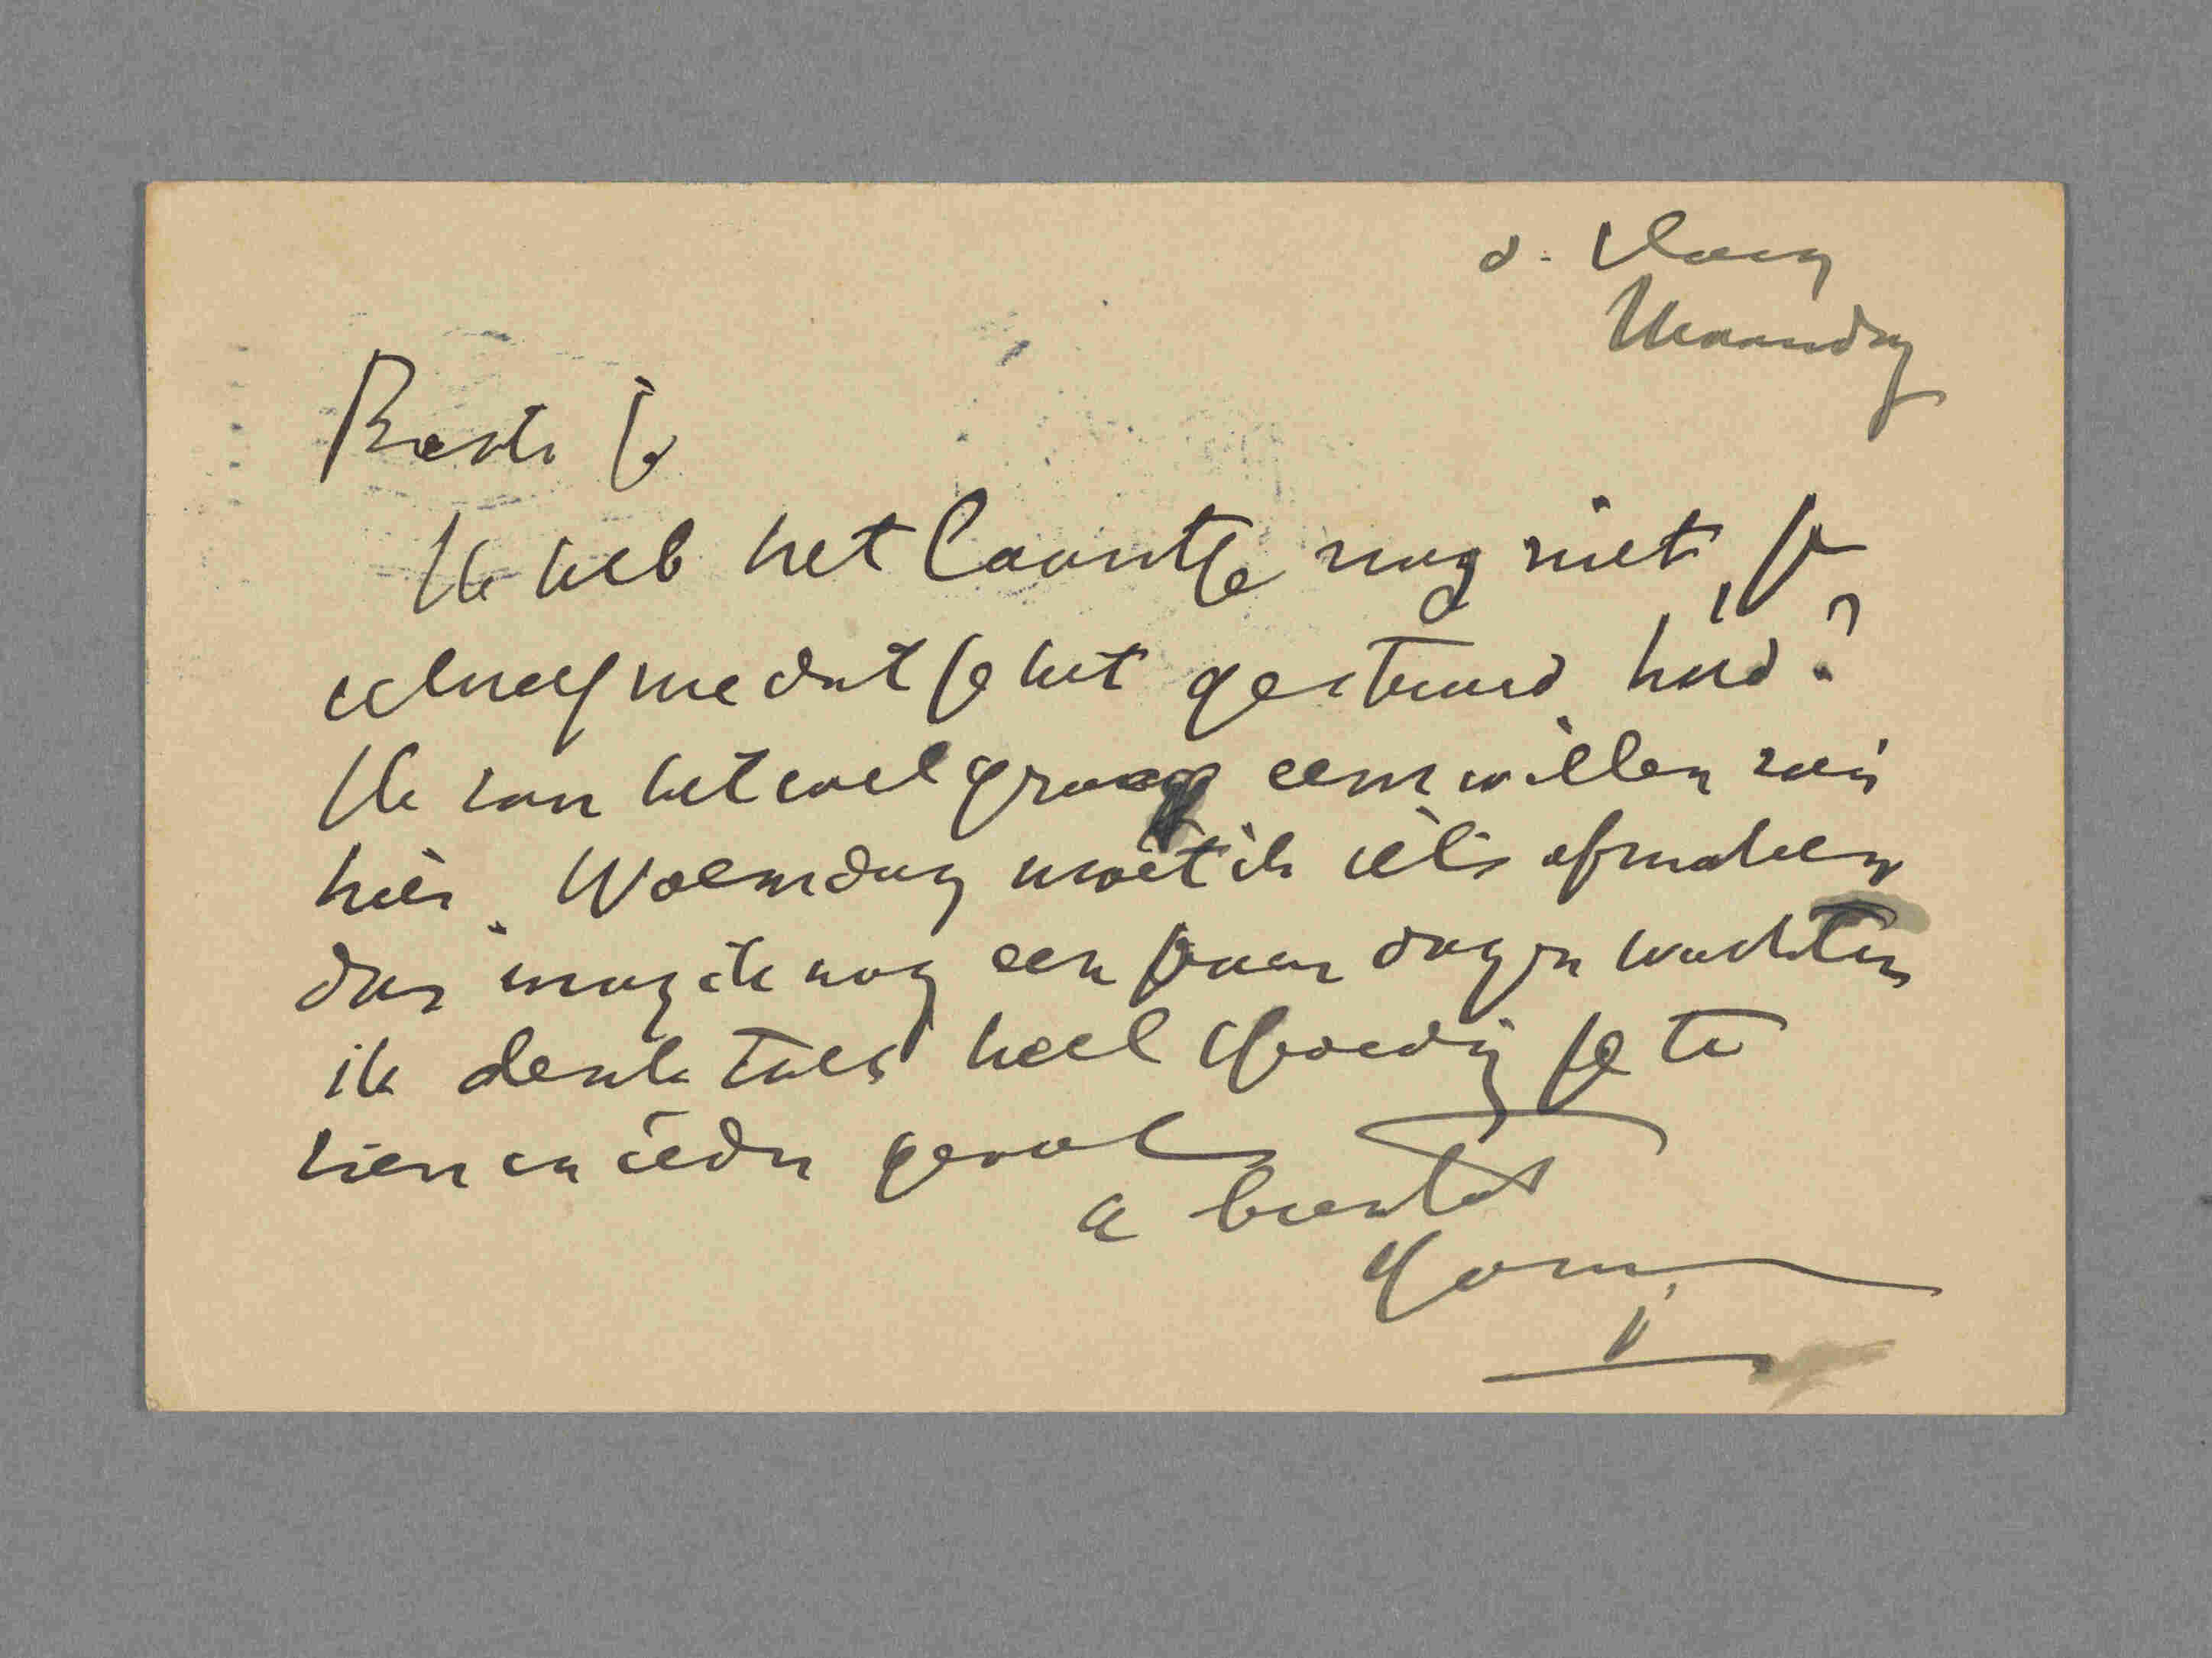 d. Haag
Maandag
Beste Jo
Ik heb het Laantje nog niet, je
schreef me dat je het gestuurd had?
Ik zou het wel graag eens willen zien
hier. Woensdag moet ik iets afmaken
dus mag ik nog een paar dagen wachten
ik denk toch heel spoedig je te
zien in ieder geval
a bientot